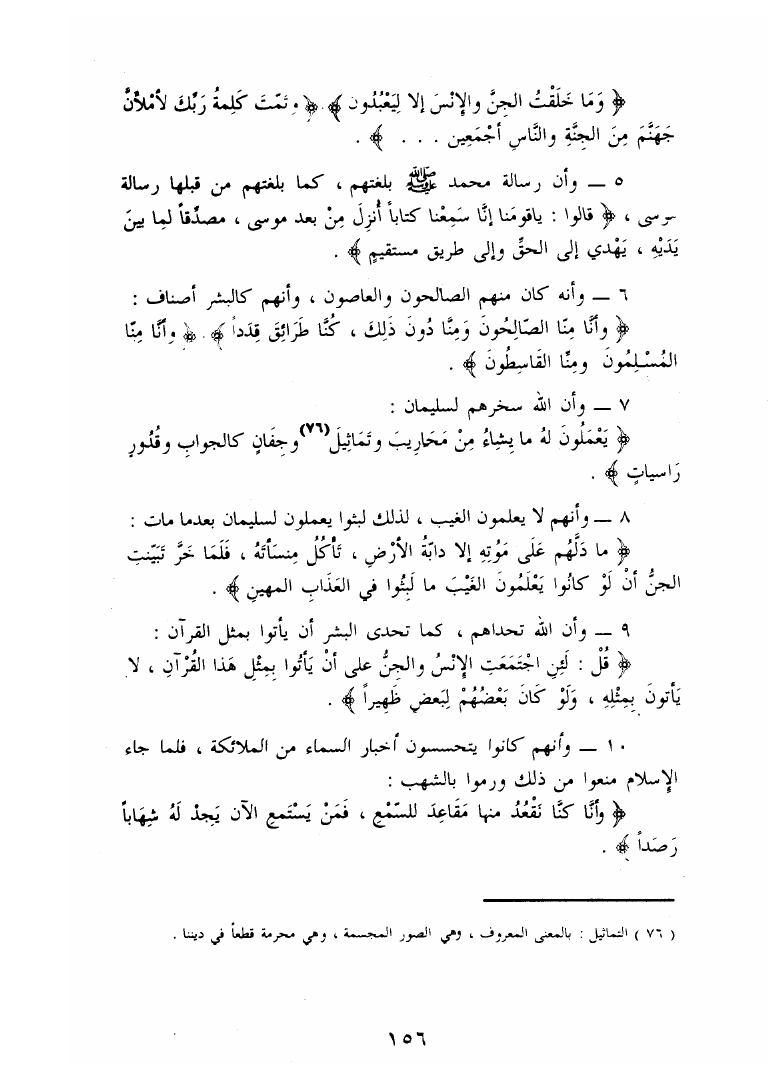 ﴿ وَمَا خَلَقْتُ الجِنَّ والإِنْسَ إلا لِيَعْبُدُون ﴾ . ﴿ وتمَّتَ كَلِمةُ رَبُّكَ لأمْلأنَّ
جَهَنَّمَ مِنَ الجِنَّةِ والنَّاسِ أجْمَعِين . . . ﴾ .
٥ ــ وأن رسالة محمد ﷺ بلغتهم ، كما بلغتهم من قبلها رسالة
موسى ، ﴿ قالوا : ياقومَنا إنَّا سَمِعْنا كتاباً أُنزِلَ مِنْ بعد موسى ، مصدِّقاً لمِا بينَ
يَدَيْهِ ، يَهْدي إلى الحقِّ وإلى طريق مستقيمٍ ﴾ .
٦ ــ وأنه كان منهم الصالحون والعاصون ، وأنهم كالبشر أصناف :
﴿ وأنَّا مِنَّا الصّالِحُونَ وَمِنَّا دُونَ ذَلِكَ ، كُنَّا طَرَائِقَ قِدَداً ﴾ . ﴿ وأنَّا مِنّا
المُسْلِمُونَ ومِنَّا القَاسِطُونَ ﴾ .
٧ ــ وأن الله سخرهم لسليمان :
﴿ يَعْمَلُونَ لهُ ما يشَاءُ مِنْ مَحَاريبَ وتَمَاثِيلَ(٧٦) وجِفَانٍ كالجوابِ وقُدُورٍ
رَاسياتٍ ﴾ .
٨ ــ وأنهم لا يعلمون الغيب ، لذلك لبثوا يعملون لسليمان بعدما مات :
﴿ ما دَلَّهُم عَلَى مَوْتِهِ إلا دابّةُ الأرْضِ ، تَأكُلُ مِنسَأتَهُ ، فَلَمَا خَرَّ تَبيّنتِ
الجنُّ أنْ لَوْ كانُوا يَعْلَمُونَ الغَيْبَ ما لَبِثُوا في العَذَابِ المهينِ ﴾ .
٩ ــ وأن الله تحداهم ، كما تحدى البشر أن يأتوا بمثل القرآن :
﴿ قُلْ : لَئِنِ اجْتَمَعَتِ الإِنْسُ والجنُّ على أنْ يَأتُوا بِمِثْلِ هَذا القُرْآنِ ، لا
يَأتونَ بِمِثْلِهِ ، وَلَوْ كَانَ بَعْضُهُمْ لِبَعضٍ ظَهِيراً ﴾ .
١٠ ــ وأنهم كانوا يتحسسون أخبار السماء من الملائكة ، فلما جاء
الإِسلام منعوا من ذلك ورموا بالشهب :
﴿ وأنَّا كنَّا نَقْعُدُ منها مَقَاعِدَ للسّمْعِ ، فَمَنْ يَسْتَمعِ الآن يَجِدْ لَهُ شِهَاباً
رَصَداً ﴾ .
( ٧٦ ) التماثيل : بالمعنى المعروف ، وهي الصور المجسمة ، وهي محرمة قطعاً في ديننا .
١٥٦